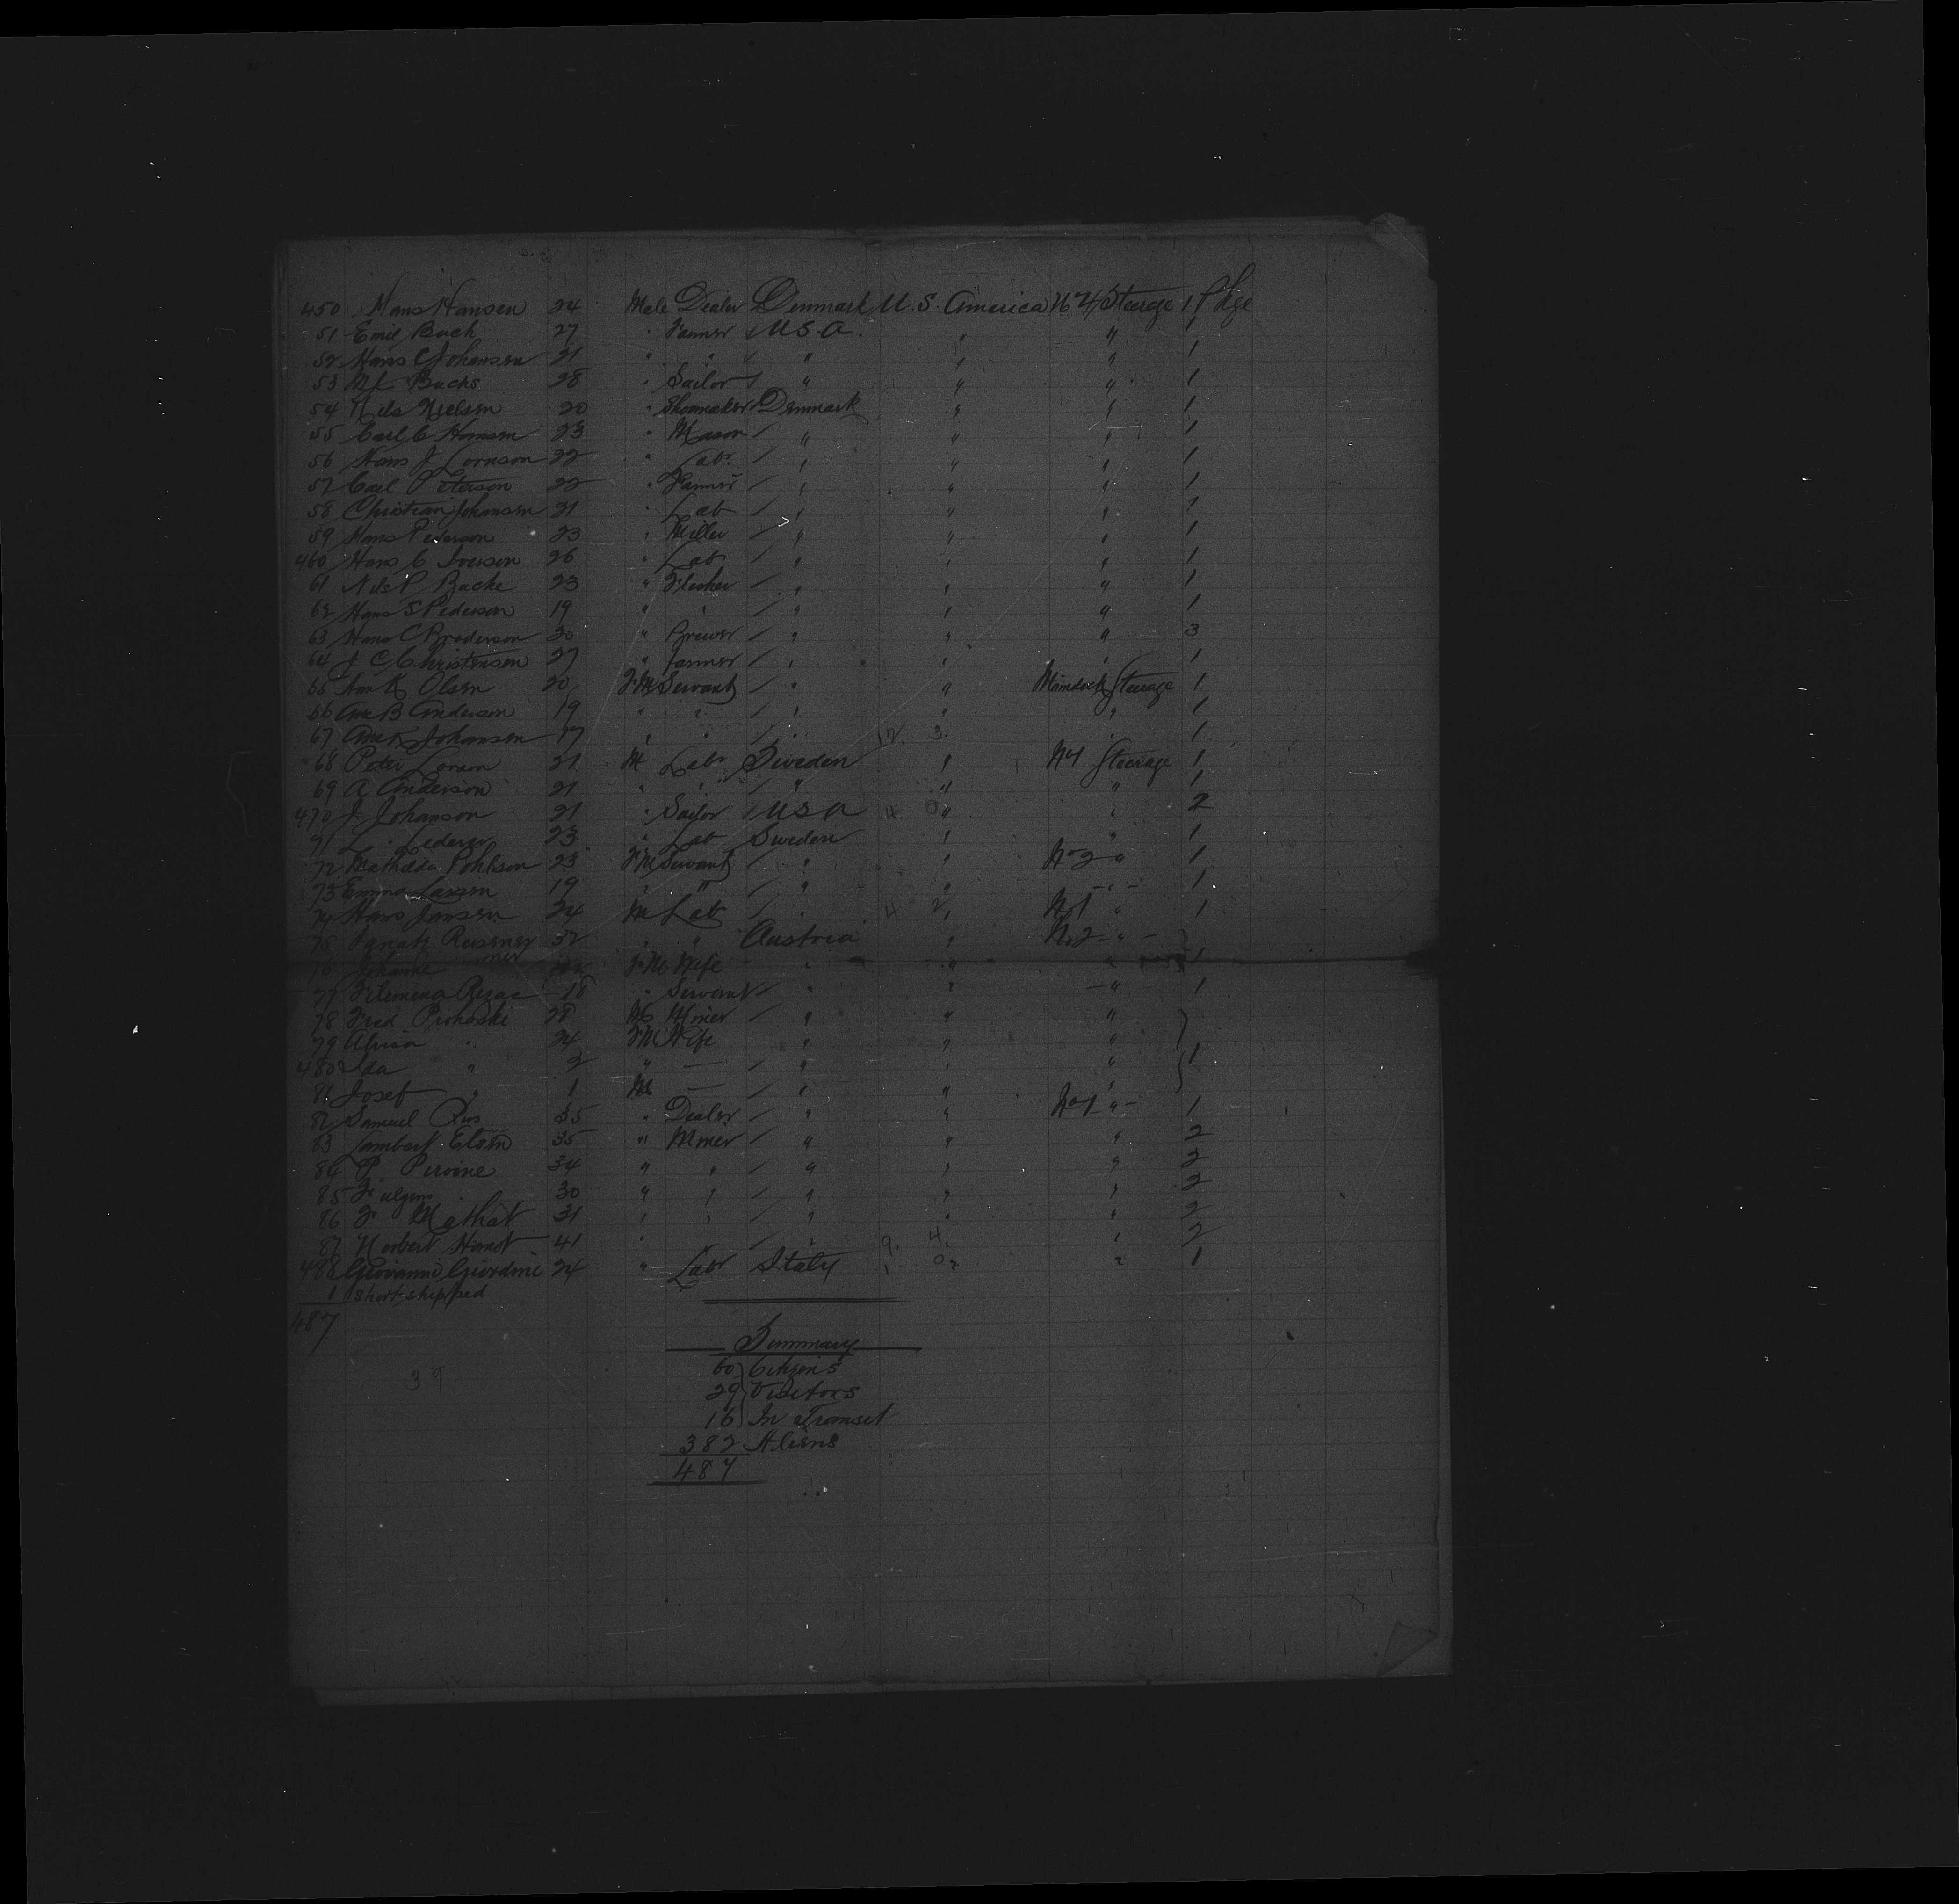 450 Hans Hansen 24 Male Dealer Denmark U.S. America No 4 Steerage 1 Pkge
51 Emil Bach 27 " Farmer / U S A. " " 1
52 Hans C Johansen 21 " " " " " 1
53 Bachs 28 " Sailor / " " " 1
54 Nils Nielsen 20 " Shoemaker Denmark " " 1
55 Carl C Hansen 23 " Mason / " " " 1
56 Hans J 22 " Labr / " " " 1
57 Carl Peterson 22 " Farmer / " " " 1
58 Christian Johansen 21 " Lab / " " " 2
59 Hans Pederson 23 " Miller / " " " 1
460 Hans C Iversen 26 " Lab / " " " 1
61 Nils P Bache 23 " / " " " 1
62 Hans S Pederson 19 " " / " " " 1
63 Hans C Broderson 30 " Brewer / " " " 3
64 J C Christensen 27 " farmer / " " " 1
65 Ane K Olsen 20 F M Servant / " " Steerage 1
66 Ane B Anderson 19 " " / " " " 1
67 Ane K Johansen 17 " " / " 12. 3. " 1
68 Peter Larson 21 M Labr Sweden " No 1 Steerage 1
69 A Anderson 21 " " / " " " 1
470 J Johanson 21 " Sailor / U S A 4 0 " " 2
71 L. Lederer 23 " Lab Sweden " " 1
72 Mathilda Pohlson 23 F M Servant / " " No 2 " 1
73 Emma Larsen 19 " " / " " - " - 1
74 Hans Jansen 24 M Lab / " 4 2 " No 1 " 1
75 Ignatz 32 " " Austria " No 2 - " -
76 Johanna F M Wife " " " 1
77 Filomena 18 " Servant / " " - " 1
78 Fred 28 M Miner / " " "
79 24 F M Wife " " "
480 Ida " 2 " — / " " " 1
81 Josef " 1 M — / " " "
82 Samuel 35 " Dealer / " " No 1 - " - 1
83 Lambert Elsen 35 " Miner / " " " 2
84 P. Pivoine 34 " " / " " " 2
85 30 " " / " " " 2
86 F Mathat 31 " " / " " " 2
87 Norbert 41 " / " 9. 4. " 2
488 Giovanni Giordoni 24 " Labr Italy 1 0 " " 1
1 Short shipped
487
Summary
60 Citizens
29 Visitors
16 In Transit
382 Aliens
487